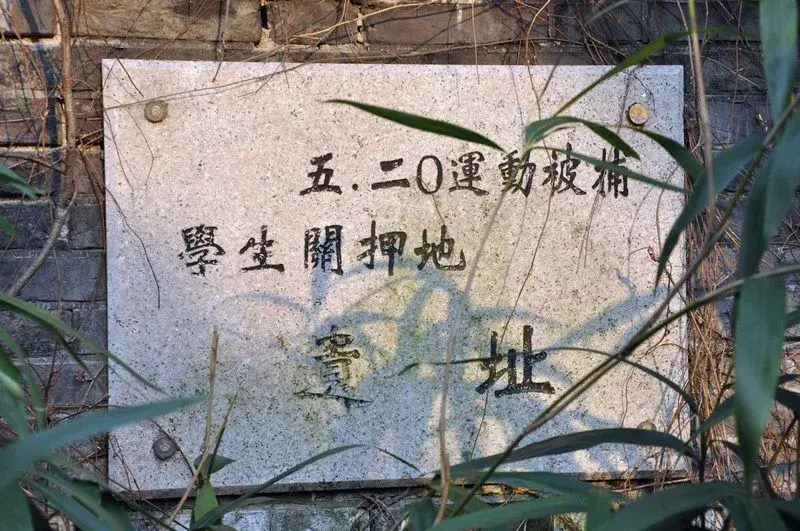 五.二0運動被捕
學生關押地
遺址